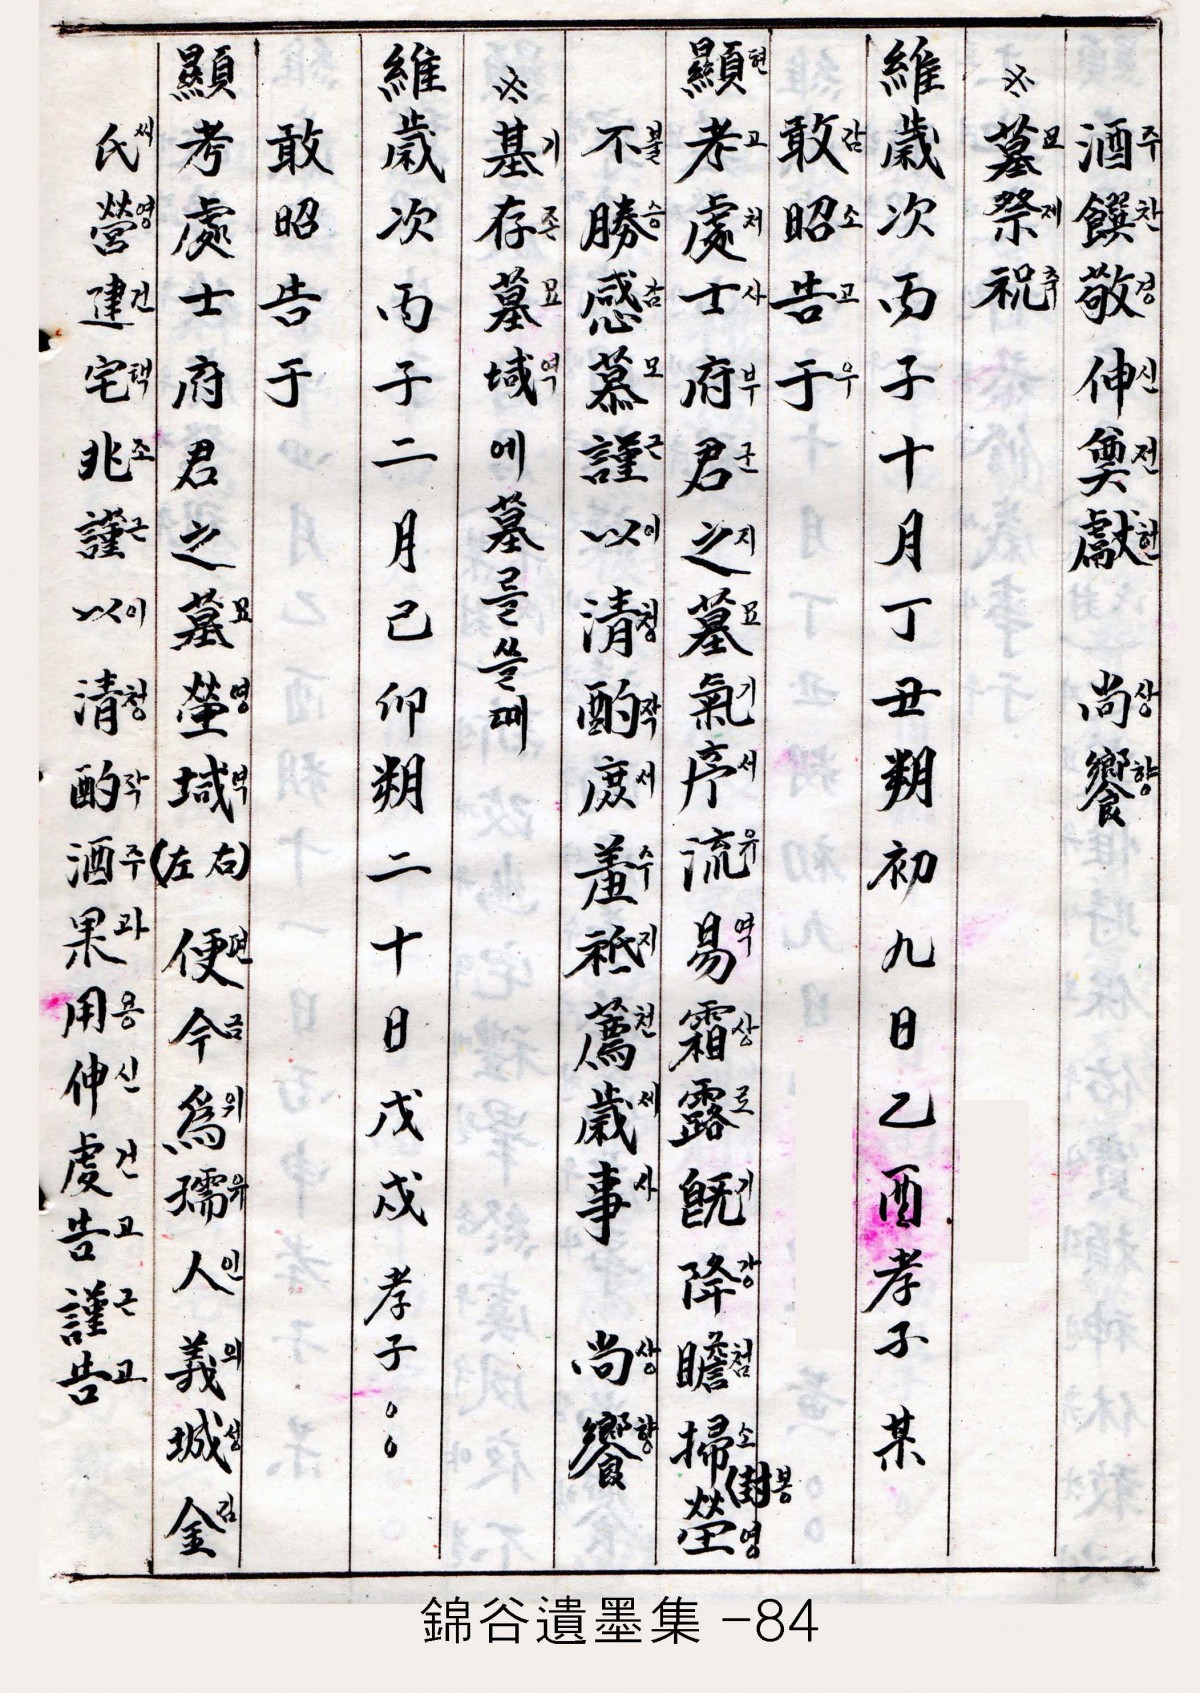 酒주饌찬敬경伸신奠전獻헌 尚상饗향
※墓묘祭제祝축
維歲次丙子十月丁丑朔初九日乙酉孝子某
敢감昭소告고于우
顯현考고處처士사府부君군之지墓묘氣기序서流유易역霜상露로旣기降강瞻첨掃소(封)봉塋영
不불勝승感감慕모謹근以이清청酌작庶서羞수祗지薦천歲세事사 尚상饗향
※基기存존墓묘域역에墓를쓸때
維歲次丙子二月己卯朔二十日戊戌孝子○○
敢昭告于
顯考處士府君之墓묘塋영域역(左右)便편今금爲위孺유人인義의城성金김
氏씨營영建건宅택兆조謹근以이清청酌작酒주果과用용伸신虔건告고謹근告고
錦谷遺墨集 -84